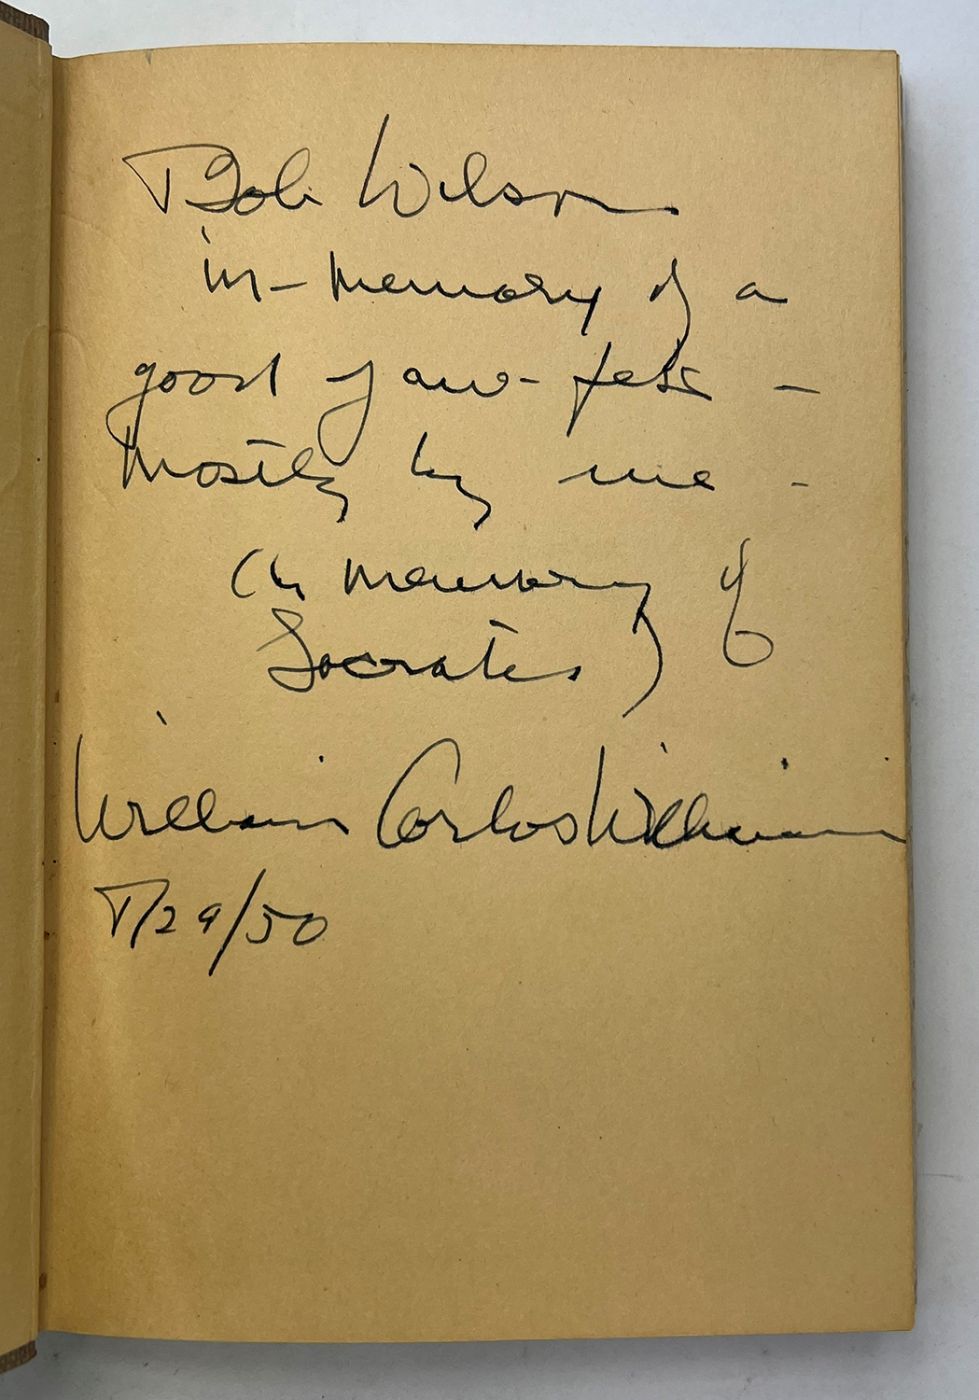 Bob Wilson
in memory of a
good jaw-fest -
mostly by me -
(in memory of
Socrates)
William Carlos Williams
7/29/50